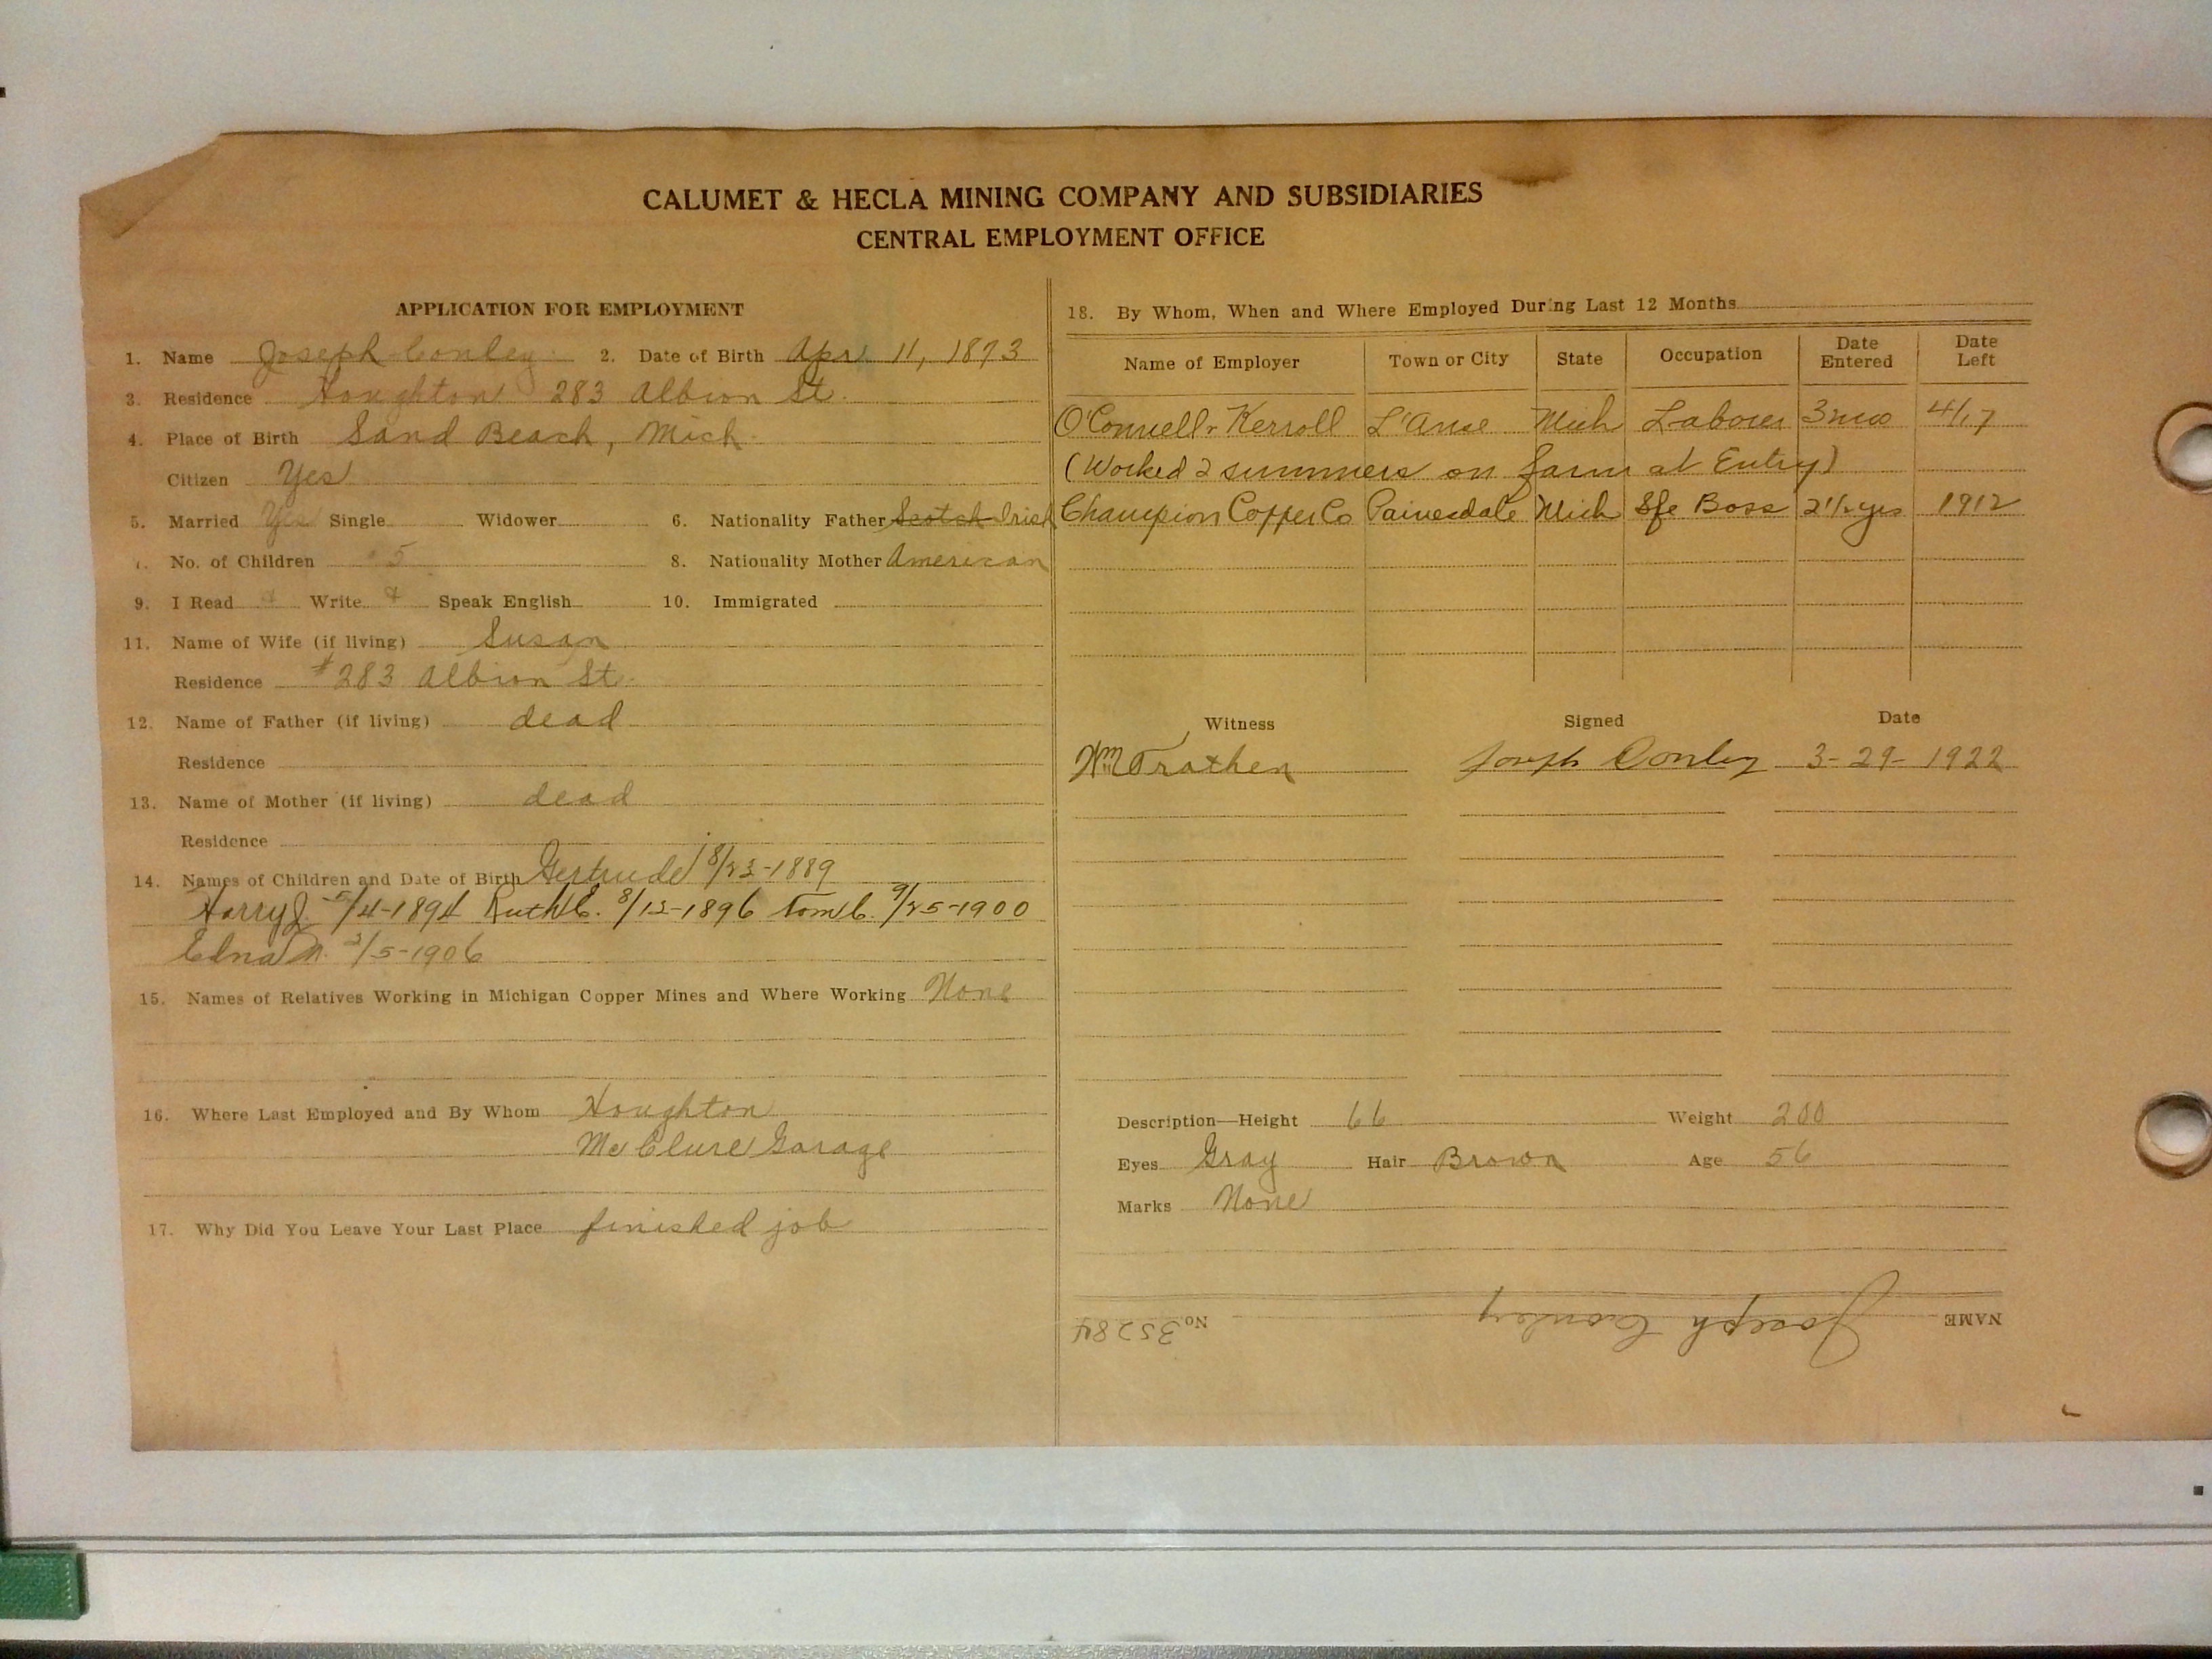 CALUMET & HECLA MINING COMPANY AND SUBSIDIARIES
CENTRAL EMPLOYMENT OFFICE
APPLICATION FOR EMPLOYMENT
1. Name Joseph Conley 2. Date of Birth Apr. 11, 1873
3. Residence Houghton 283 Albion St.
4. Place of Birth Sand Beach, Mich.
Citizen Yes
5. Married Yes Single Widower 6. Nationality Father Scotch Irish
No. of Children 5 8. Nationality Mother American
9. I Read Write Speak English 10. Immigrated
11. Name of Wife (if living) Susan
Residence #283 Albion St.
12. Name of Father (if living) dead
Residence
13. Name of Mother (if living) dead
Residence
14. Names of Children and Date of Birth Gertrude 8/23-1889
Harry J. 5/4-1894 Ruth E. 8/13-1896 Tom C. 9/25-1900
Edna M. 3/5-1906
15. Names of Relatives Working in Michigan Copper Mines and Where Working None
16. Where Last Employed and By Whom Houghton
McClure Garage
17. Why Did You Leave Your Last Place finished job
18. By Whom, When and Where Employed During Last 12 Months
Name of Employer Town or City State Occupation Date Entered Date Left
O'Connell & Kerroll L'Anse Mich Laborer 3 mo 4/17
(Worked 2 summers on farm at Entry)
Champion Copper Co Painesdale Mich Sfe Boss 2 1/2 yrs 1912
Witness Signed Date
Wm Trathen Joseph Conley 3-29-1922
Description—Height 66 Weight 200
Eyes Gray Hair Brown Age 56
Marks None
NAME Joseph Conley No 35284